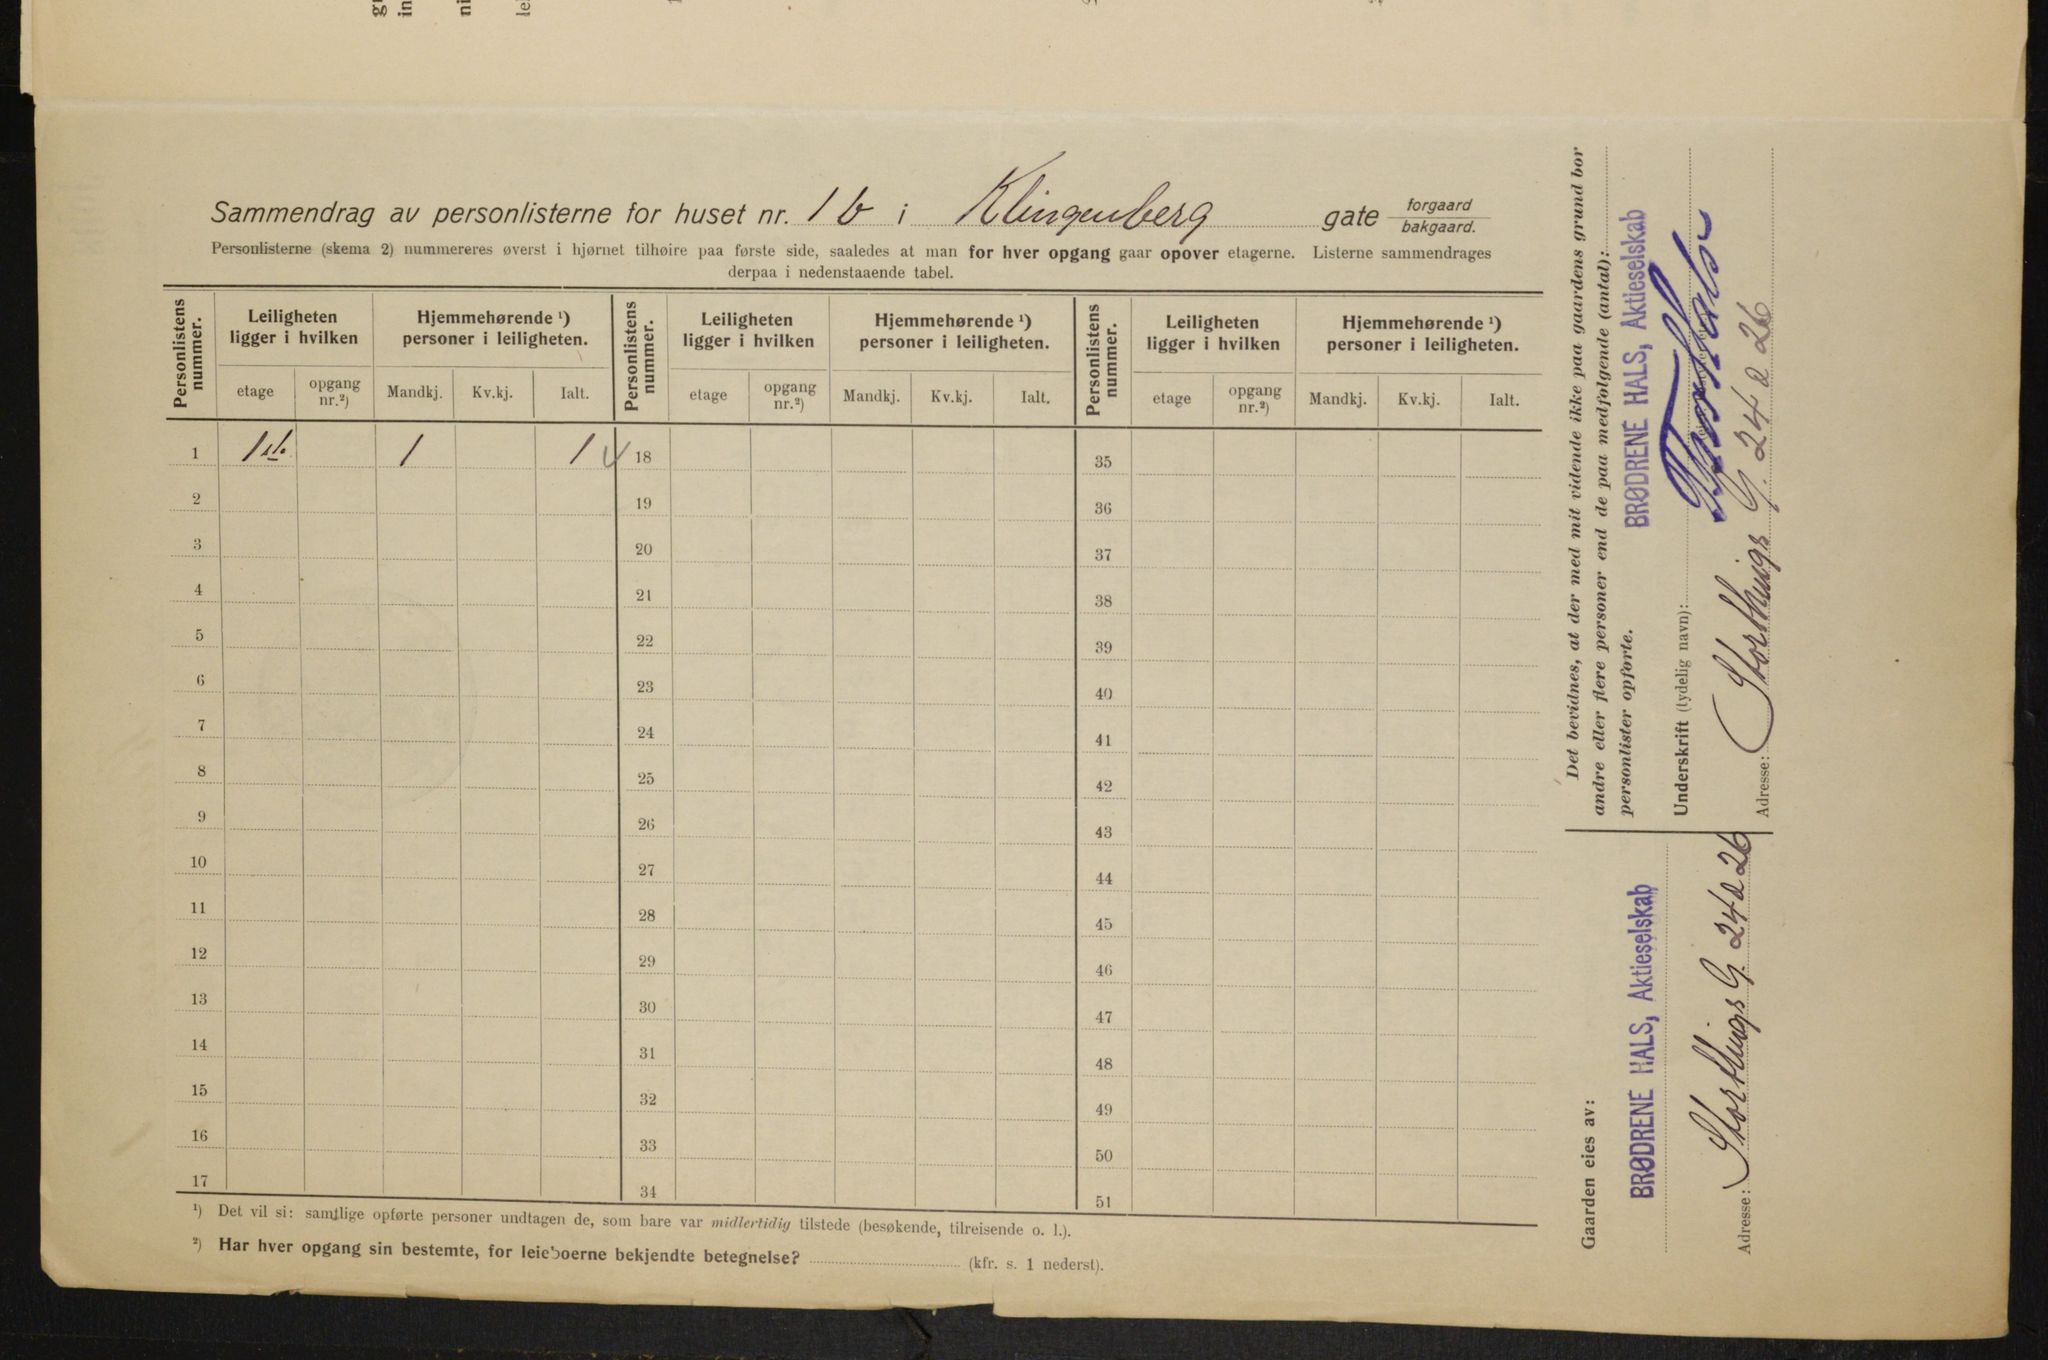 Sammendrag av personlisterne for huset nr. 1 b i Klingenberg gate forgaard bakgaard.
Personlisterne (skema 2) nummereres øverst i hjørnet tilhøire paa første side, saaledes at man for hver opgang gaar opover etagerne. Listerne sammendrages
derpaa i nedenstaaende tabel.
Personlistens nummer. Leiligheten ligger i hvilken Hjemmehørende ¹) personer i leiligheten. Personlistens nummer. Leiligheten ligger i hvilken Hjemmehørende ¹) personer i leiligheten. Personlistens nummer. Leiligheten ligger i hvilken Hjemmehørende ¹) personer i leiligheten.
etage opgang nr.²) Mandkj. Kv.kj. Ialt. etage opgang nr.²) Mandkj. Kv.kj. Ialt. etage opgang nr.²) Mandkj. Kv.kj. Ialt.
1 1ste 1 1 18 35
2 19 36
3 20 37
4 21 38
5 22 39
6 23 40
7 24 41
8 25 42
9 26 43
10 27 44
11 28 45
12 29 46
13 30 47
14 31 48
15 32 49
16 33 50
17 34 51
¹) Det vil si: samtlige opførte personer undtagen de, som bare var midlertidig tilstede (besøkende, tilreisende o. l.).
²) Har hver opgang sin bestemte, for leieboerne bekjendte betegnelse? (kfr. s. 1 nederst).
Det bevidnes, at der med mit vidende ikke paa gaardens grund bor
andre eller flere personer end de paa medfølgende (antal):
personlister opførte.
BRØDRENE HALS, Aktieselskab
Underskrift (tydelig navn):
Adresse: Storthings G. 24 & 26
Gaarden eies av:
BRØDRENE HALS, Aktieselskab
Adresse: Storthings G. 24 & 26